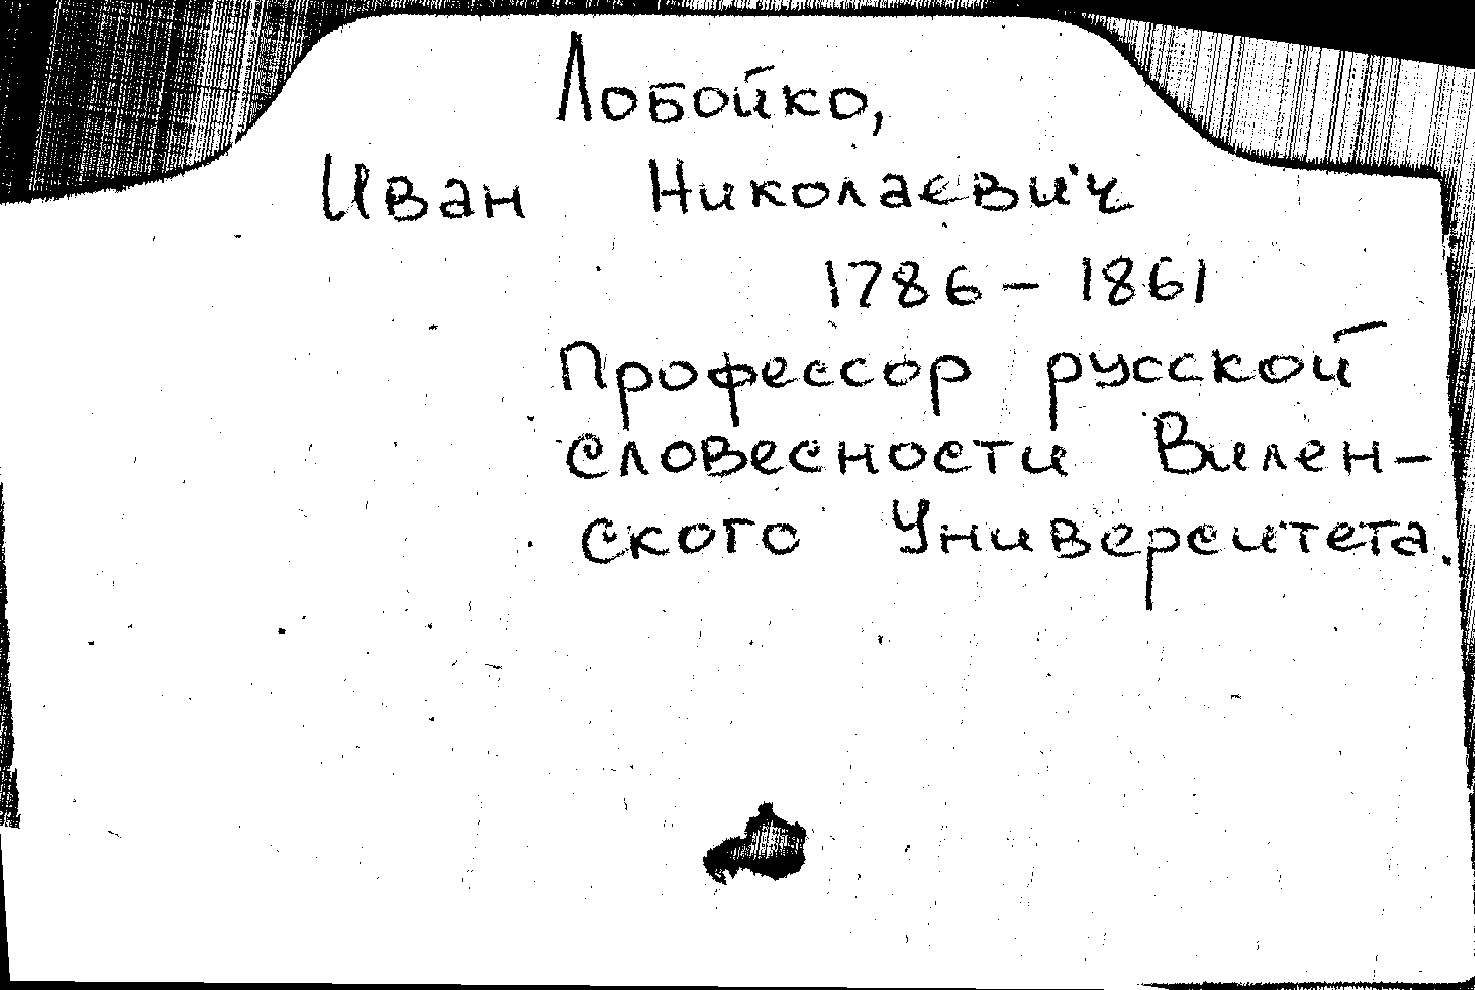 Лобойко,
Иван Николаевич
1786 - 1861
Профессор русской
словесности Вилен-
ского Университета.